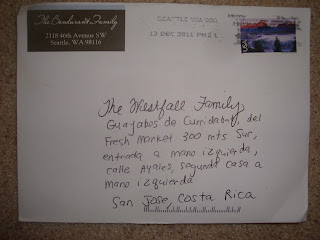 The Bondurant Family
2118 46th Avenue SW
Seattle, WA 98116
SEATTLE WA 980
13 DEC 2011 PM 2 L
USA
The Westfall Family
Guayabos de Curridabat, del
Fresh Market 300 mts Sur,
entrada a mano izquierda,
calle Ayales, segunda casa a
mano izquierda
San Jose, Costa Rica